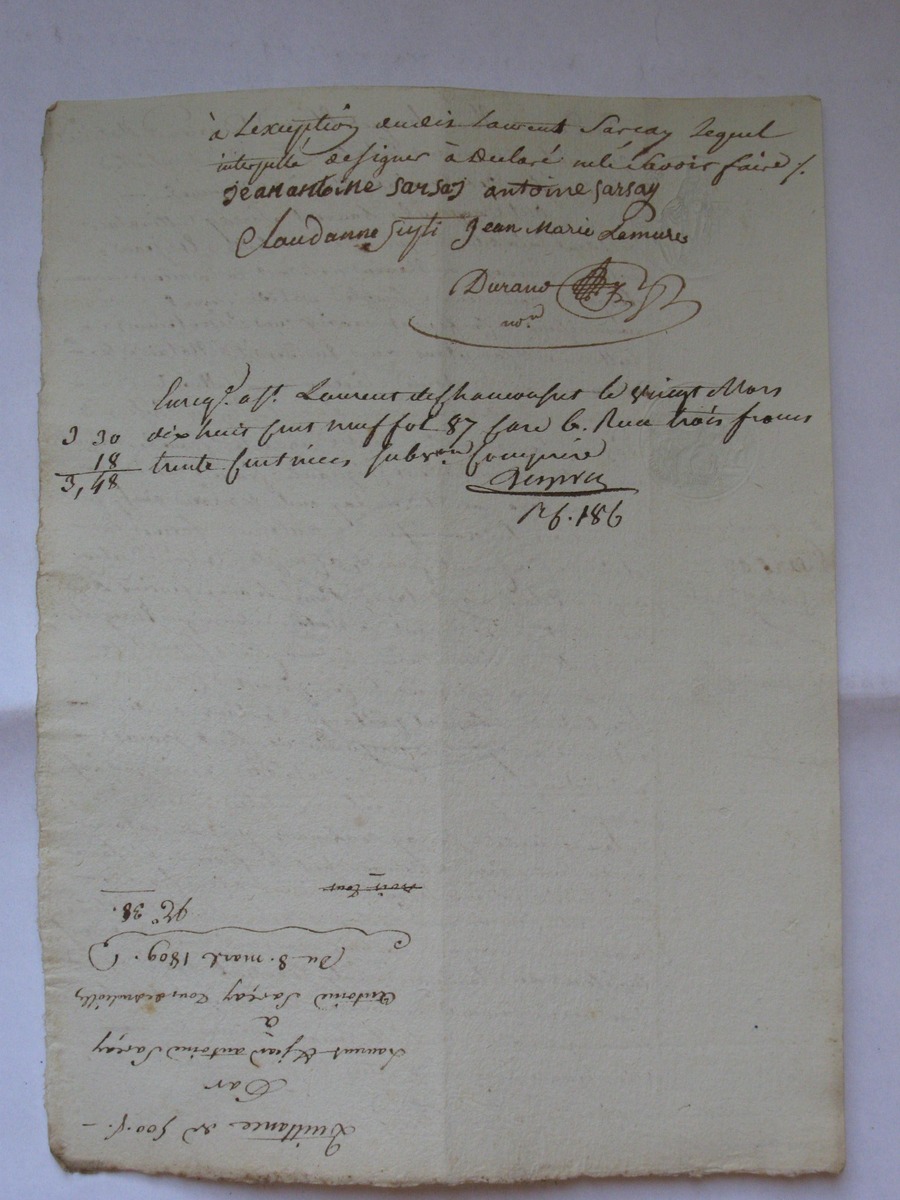 à Lexception dudit Laurent Sarcay Lequel
interpellé designer à declaré nele scavoir faire ./.
Jean antoine Sarsay antoine Sarsay
Claudanne Jean Marie Lamures
Durand
no.re
Enreg.é a St. Laurent dechamousset le vingt Mars
3 30 dix huit cent neuf fol 87 case 6. Reçu trois francs
18 trente centimes subv.on comprise
3,48
R 6. 186
Quittance de 500.f. –
Par
Laurent & jean antoine Sarçay
à
Antoine Sarçay
Du 8. mars 1809.
38.